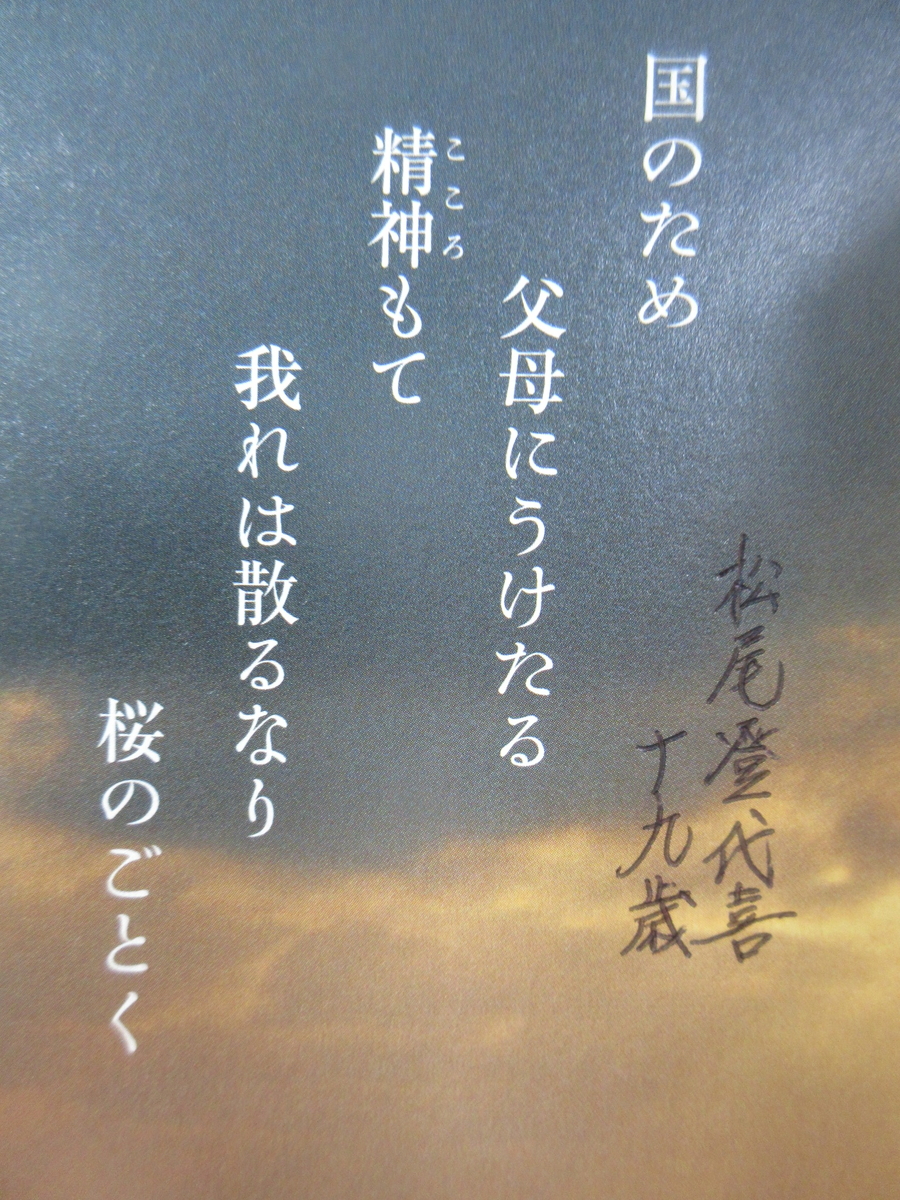 松尾登代喜
十九歳
国のため
父母にうけたる
精神もて
こころ
我れは散るなり
桜のごとく